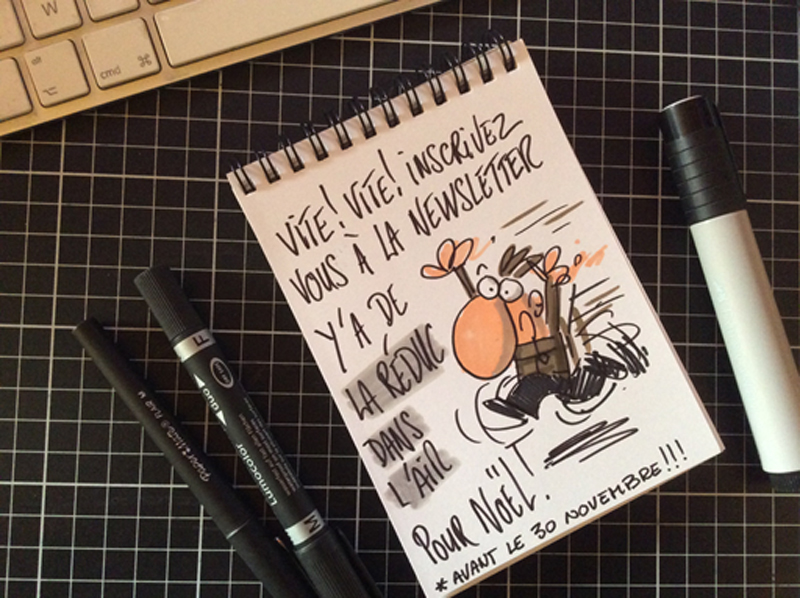 W
alt
cmd
VITE! VITE! INSCRIVEZ
VOUS À LA NEWSLETTER
Y'A DE
LA RÉDUC
DANS
L'AIR
POUR NOËL!
* AVANT LE 30 NOVEMBRE!!!
F
duo
Lumocolor
M